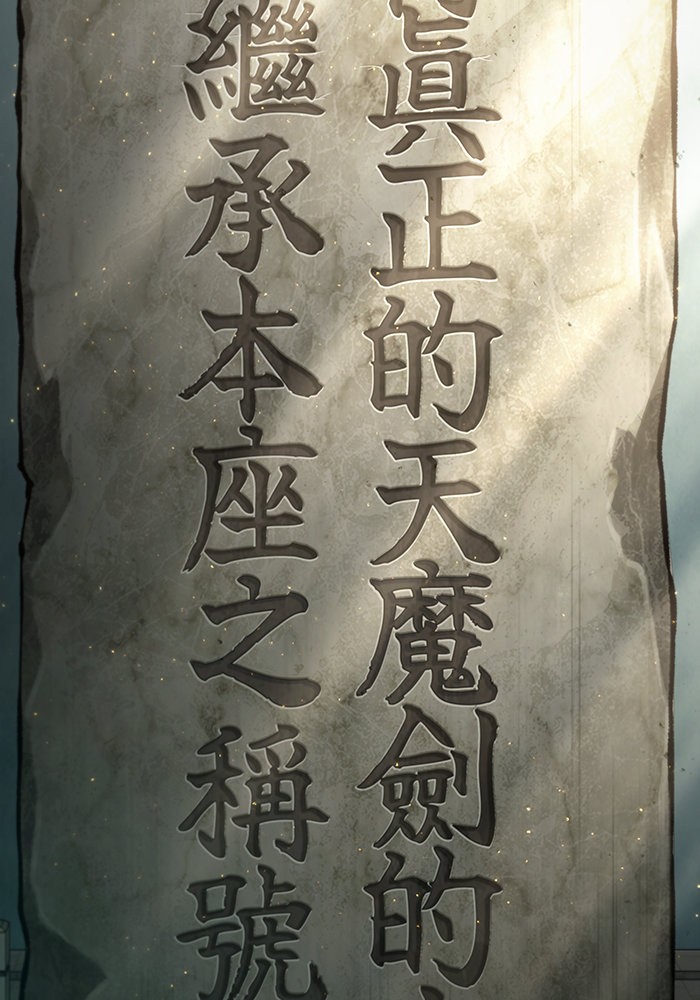 眞正的天魔劍的
繼承本座之稱號